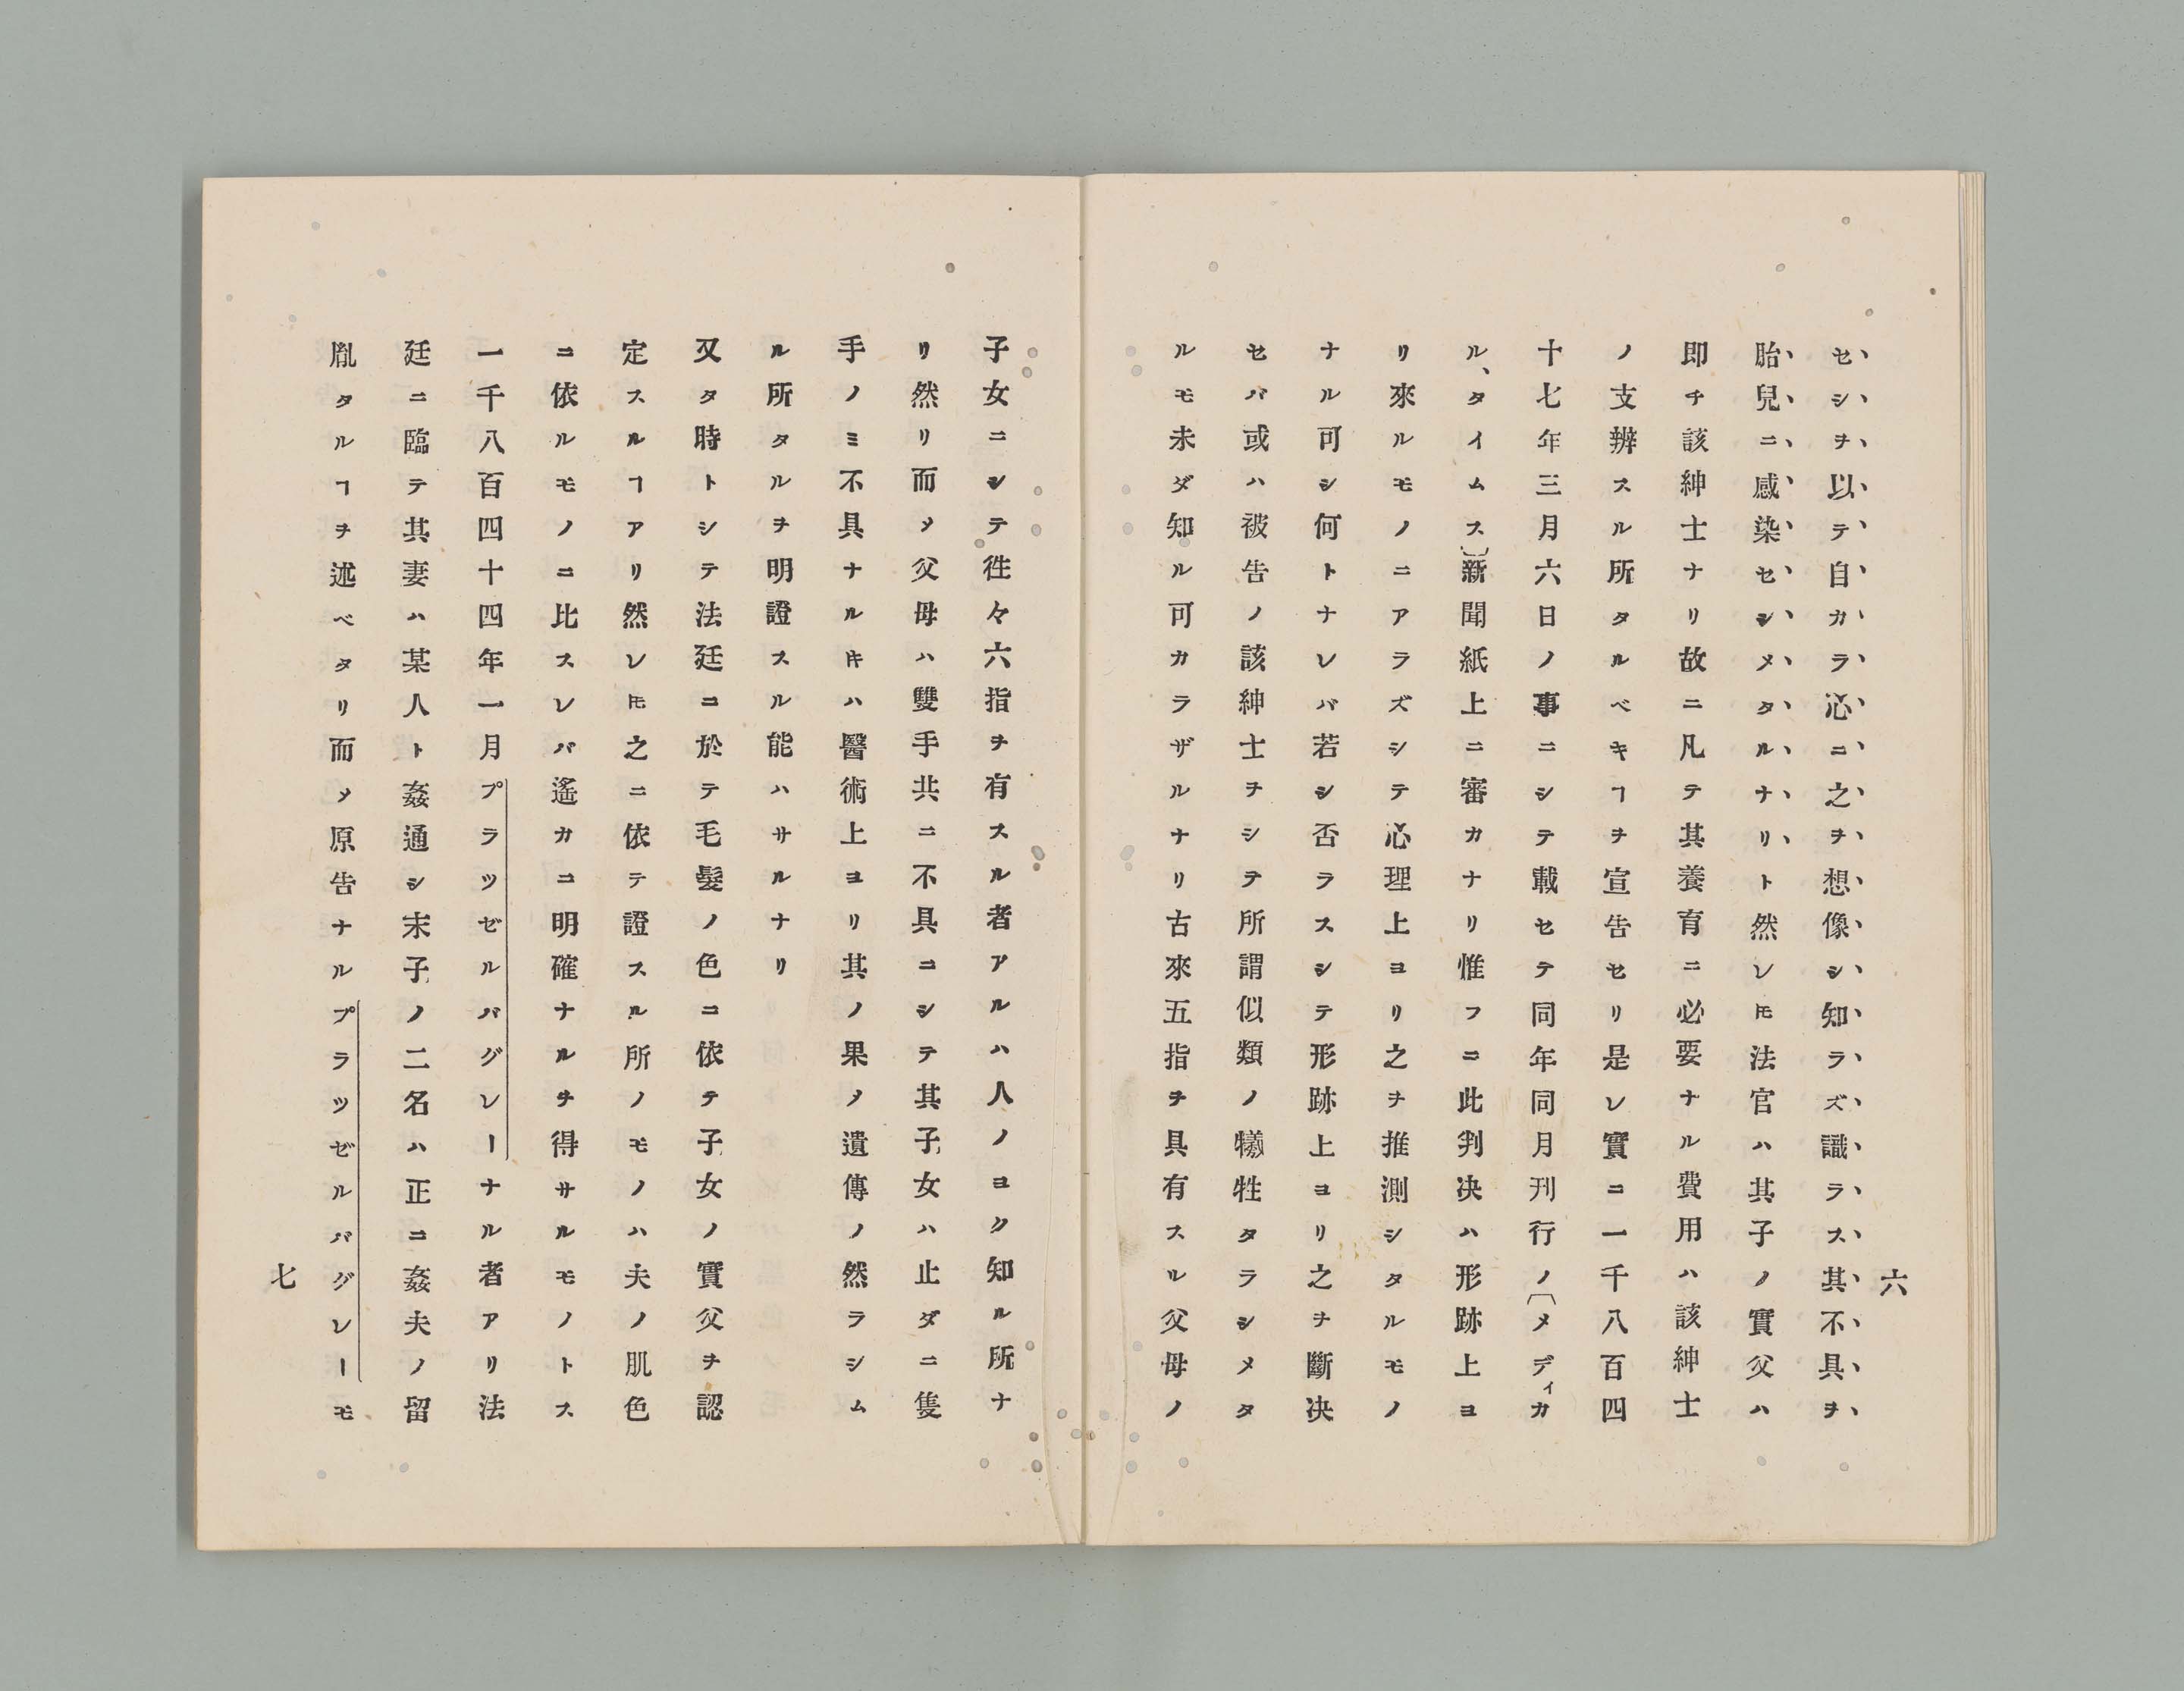 六
セシヲ以テ自カラ心ニ之ヲ想像シ知ラズ識ラス其不具ヲ
胎兒ニ感染セシメタルナリト然レ𪜈法官ハ其子ノ實父ハ
即チ該紳士ナリ故ニ凡テ其養育ニ必要ナル費用ハ該紳士
ノ支辨スル所タルベキヿヲ宣告セリ是レ實ニ一千八百四
十七年三月六日ノ事ニシテ載セテ同年同月刊行ノ〔メディカ
ル、タイムス〕新聞紙上ニ審カナリ惟フニ此判决ハ形跡上ヨ
リ來ルモノニアラズシテ心理上ヨリ之ヲ推測シタルモノ
ナル可シ何トナレバ若シ否ラスシテ形跡上ヨリ之ヲ斷决
セバ或ハ被告ノ該紳士ヲシテ所謂似類ノ犧牲タラシメタ
ルモ未ダ知ル可カラザルナリ古來五指ヲ具有スル父母ノ
子女ニシテ徃々六指ヲ有スル者アルハ人ノヨク知ル所ナ
リ然リ而ノ父母ハ雙手共ニ不具ニシテ其子女ハ止ダニ隻
手ノミ不具ナルキハ醫術上ヨリ其ノ果ノ遺傳ノ然ラシム
ル所タルヲ明證スル能ハサルナリ
又タ時トシテ法廷ニ於テ毛髮ノ色ニ依テ子女ノ實父ヲ認
定スルヿアリ然レ𪜈之ニ依テ證スル所ノモノハ夫ノ肌色
ニ依ルモノニ比スレバ遙カニ明確ナルヲ得サルモノトス
一千八百四十四年一月プラッゼルバグレーナル者アリ法
廷ニ臨テ其妻ハ某人ト姦通シ末子ノ二名ハ正ニ姦夫ノ留
胤タルヿヲ述ベタリ而ノ原告ナルプラッゼルバグレーモ
七